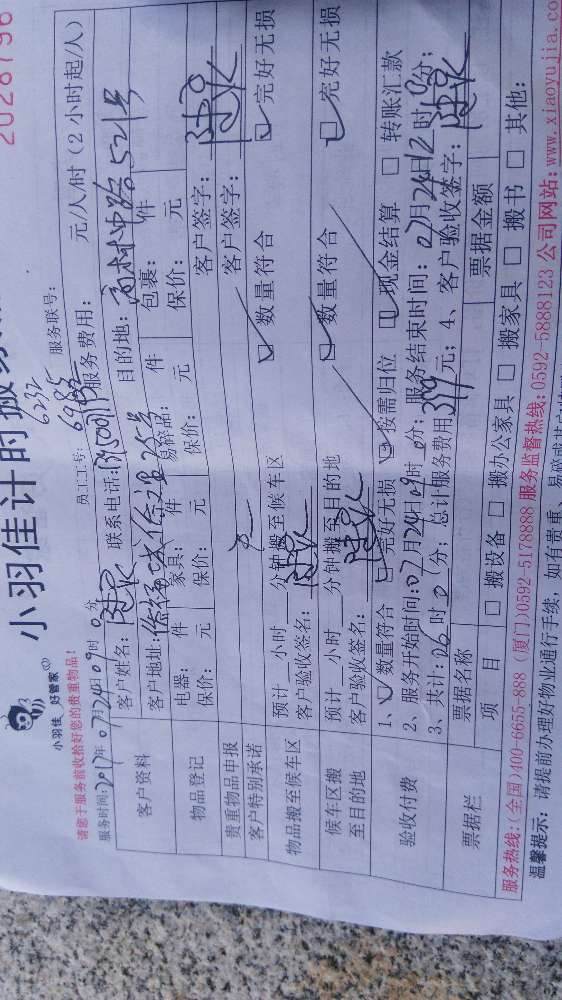 2028796
小羽佳 好管家
小羽佳计时搬家
请您于服务前收拾好您的贵重物品!
6232
服务时间:2017年07月24日09时0分 员工工号:6985 服务联号:
客户资料
客户姓名: 联系电话: 服务费用: 元/人/时(2小时起/人)
客户地址: 目的地:
物品登记
电器: 件 家具: 件 易碎品: 件 包裹: 件
保价: 元 保价: 元 保价: 元 保价: 元
贵重物品申报 无 客户签字:
客户特别承诺 客户签字:
物品搬至候车区
预计 小时 分钟搬至候车区 数量符合 完好无损
客户验收签名:
候车区搬至目的地
预计 小时 分钟搬至目的地 数量符合 完好无损
客户验收签名:
验收付费
1、数量符合 完好无损 按需归位 现金结算 转账汇款
2、服务开始时间:07月24日09时0分;服务结束时间:07月24日12时0分;
3、共计:06时0分;总计服务费用 元;4、客户验收签字:
票据栏
票据名称 票据金额
项目 搬设备 搬办公家具 搬家具 搬书 其他:
服务热线:(全国)400-6655-888 (厦门)0592-5178888 服务监督热线:0592-5888123 公司网站:www.xiaoyujia.co
温馨提示:请提前办理好物业通行手续,如有贵重、易碎